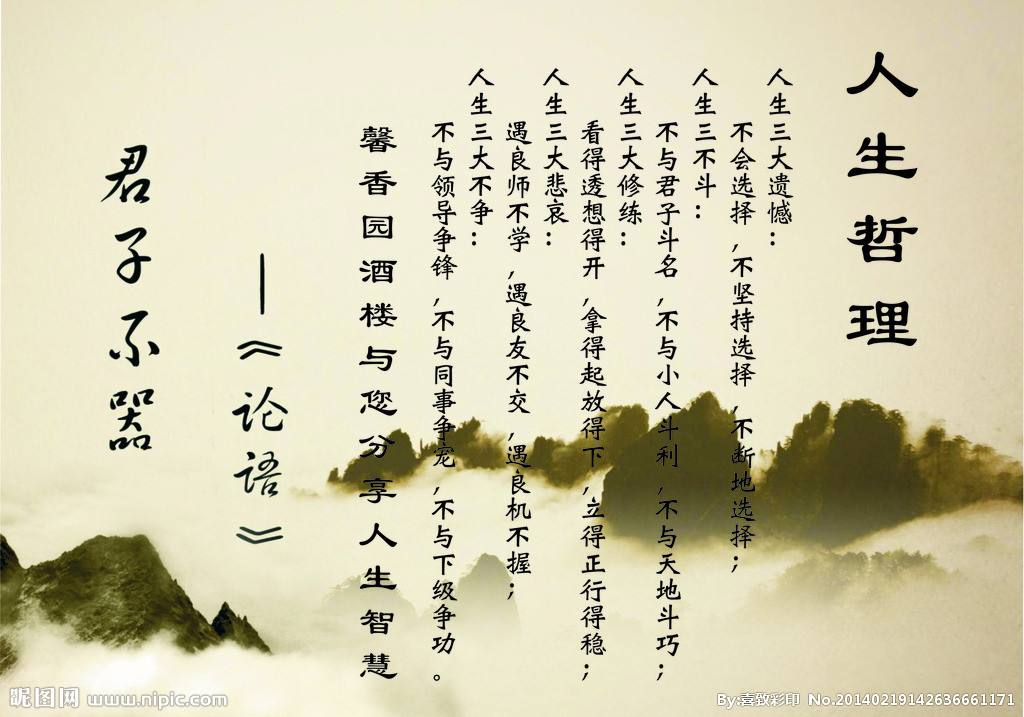 人生哲理
人生三大遗憾：
不会选择，不坚持选择，不断地选择；
人生三不斗：
不与君子斗名，不与小人斗利，不与天地斗巧；
人生三大修练：
看得透想得开，拿得起放得下，立得正行得稳；
人生三大悲哀：
遇良师不学，遇良友不交，遇良机不握；
人生三大不争：
不与领导争锋，不与同事争宠，不与下级争功。
馨香园酒楼与您分享人生智慧
—《论语》
君子不器
昵图网 www.nipic.com
By:喜致彩印 No.20140219142636661171